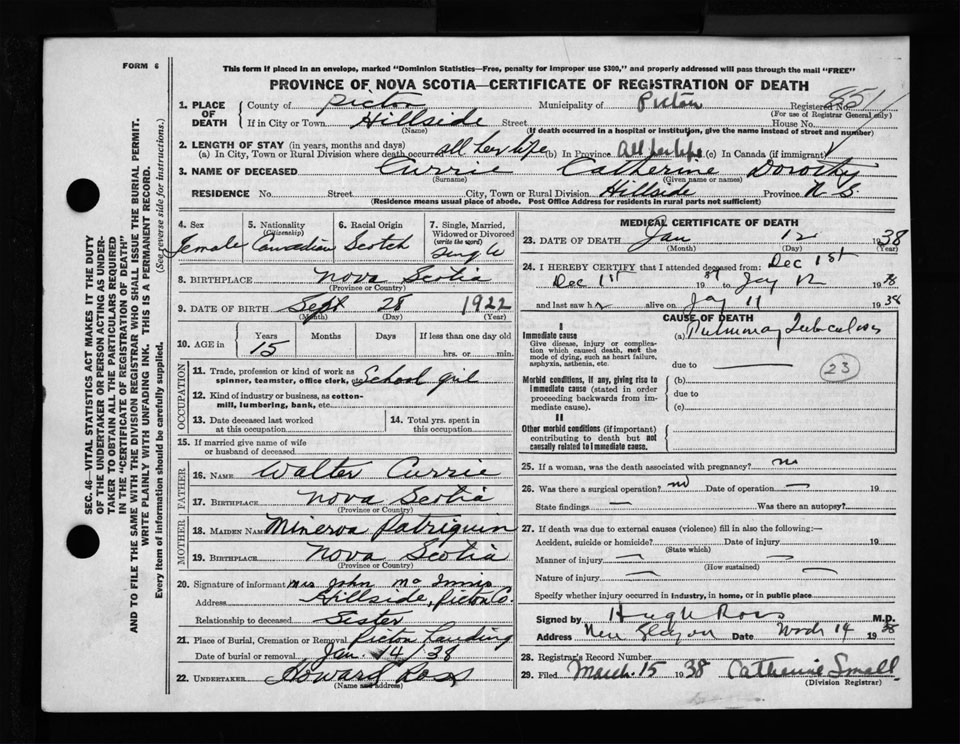 FORM 6
This form if placed in an envelope, marked "Dominion Statistics—Free, penalty for improper use $300," and properly addressed will pass through the mail "FREE"
PROVINCE OF NOVA SCOTIA—CERTIFICATE OF REGISTRATION OF DEATH
1. PLACE OF DEATH County of Pictou Municipality of Pictou Registered No. 851
(For use of Registrar General only)
If in City or Town Hillside Street House No.
(Name) (If death occurred in a hospital or institution, give the name instead of street and number)
2. LENGTH OF STAY (in years, months and days)
(a) In City, Town or Rural Division where death occurred all her life (b) In Province All her life (c) In Canada (if immigrant)
3. NAME OF DECEASED Currie Catherine Dorothy
(Surname) (Given name or names)
RESIDENCE No. Street City, Town or Rural Division Hillside Province N.S.
(Residence means usual place of abode. Post Office Address for residents in rural parts not sufficient)
4. Sex 5. Nationality (Citizenship) 6. Racial Origin 7. Single, Married, Widowed or Divorced (write the word)
Female Canadian Scotch Single
8. BIRTHPLACE Nova Scotia
(Province or Country)
9. DATE OF BIRTH Sept 28 1922
(Month) (Day) (Year)
10. AGE in Years Months Days If less than one day old
15 hrs. or min.
OCCUPATION
11. Trade, profession or kind of work as spinner, teamster, office clerk, etc. School girl
12. Kind of industry or business, as cotton-mill, lumbering, bank, etc.
13. Date deceased last worked at this occupation
14. Total yrs. spent in this occupation
15. If married give name of wife or husband of deceased
FATHER
16. NAME Walter Currie
17. BIRTHPLACE Nova Scotia
(Province or Country)
MOTHER
18. MAIDEN NAME Minerva Patriquin
19. BIRTHPLACE Nova Scotia
(Province or Country)
20. Signature of informant Mrs John McInnis
Address Hillside, Pictou Co.
Relationship to deceased Sister
21. Place of Burial, Cremation or Removal Pictou Landing
Date of burial or removal Jan. 14/38
22. UNDERTAKER Howard Ross
(Name and address)
MEDICAL CERTIFICATE OF DEATH
23. DATE OF DEATH Jan 12 1938
(Month) (Day) (Year)
24. I HEREBY CERTIFY that I attended deceased from: Dec 1st
Dec 1st 1937 to Jay 12 1938
and last saw h alive on Jay 11 1938
CAUSE OF DEATH
I
Immediate cause (a) Pulmonary Tuberculosis
Give disease, injury or complication which caused death, not the mode of dying, such as heart failure, asphyxia, asthenia, etc.
due to
23
Morbid conditions, if any, giving rise to immediate cause (stated in order proceeding backwards from immediate cause). (b)
due to
(c)
II
Other morbid conditions (if important) contributing to death but not causally related to immediate cause.
25. If a woman, was the death associated with pregnancy? no
26. Was there a surgical operation? no Date of operation 19
State findings Was there an autopsy?
27. If death was due to external causes (violence) fill in also the following:—
Accident, suicide or homicide? Date of injury 19
(State which)
Manner of injury
(How sustained)
Nature of injury
Specify whether injury occurred in industry, in home, or in public place
Signed by Hugh Ross M.D.
Address New Glasgow Date March 14 1938
28. Registrar's Record Number
29. Filed March 15 1938 Catherine Small
(Division Registrar)
SEC. 46—VITAL STATISTICS ACT MAKES IT THE DUTY
OF THE UNDERTAKER OR PERSON ACTING AS UNDER-
TAKER TO OBTAIN ALL THE PARTICULARS REQUIRED
IN THE "CERTIFICATE OF REGISTRATION OF DEATH"
AND TO FILE THE SAME WITH THE DIVISION REGISTRAR WHO SHALL ISSUE THE BURIAL PERMIT.
WRITE PLAINLY WITH UNFADING INK. THIS IS A PERMANENT RECORD.
Every item of information should be carefully supplied. (See reverse side for instructions.)